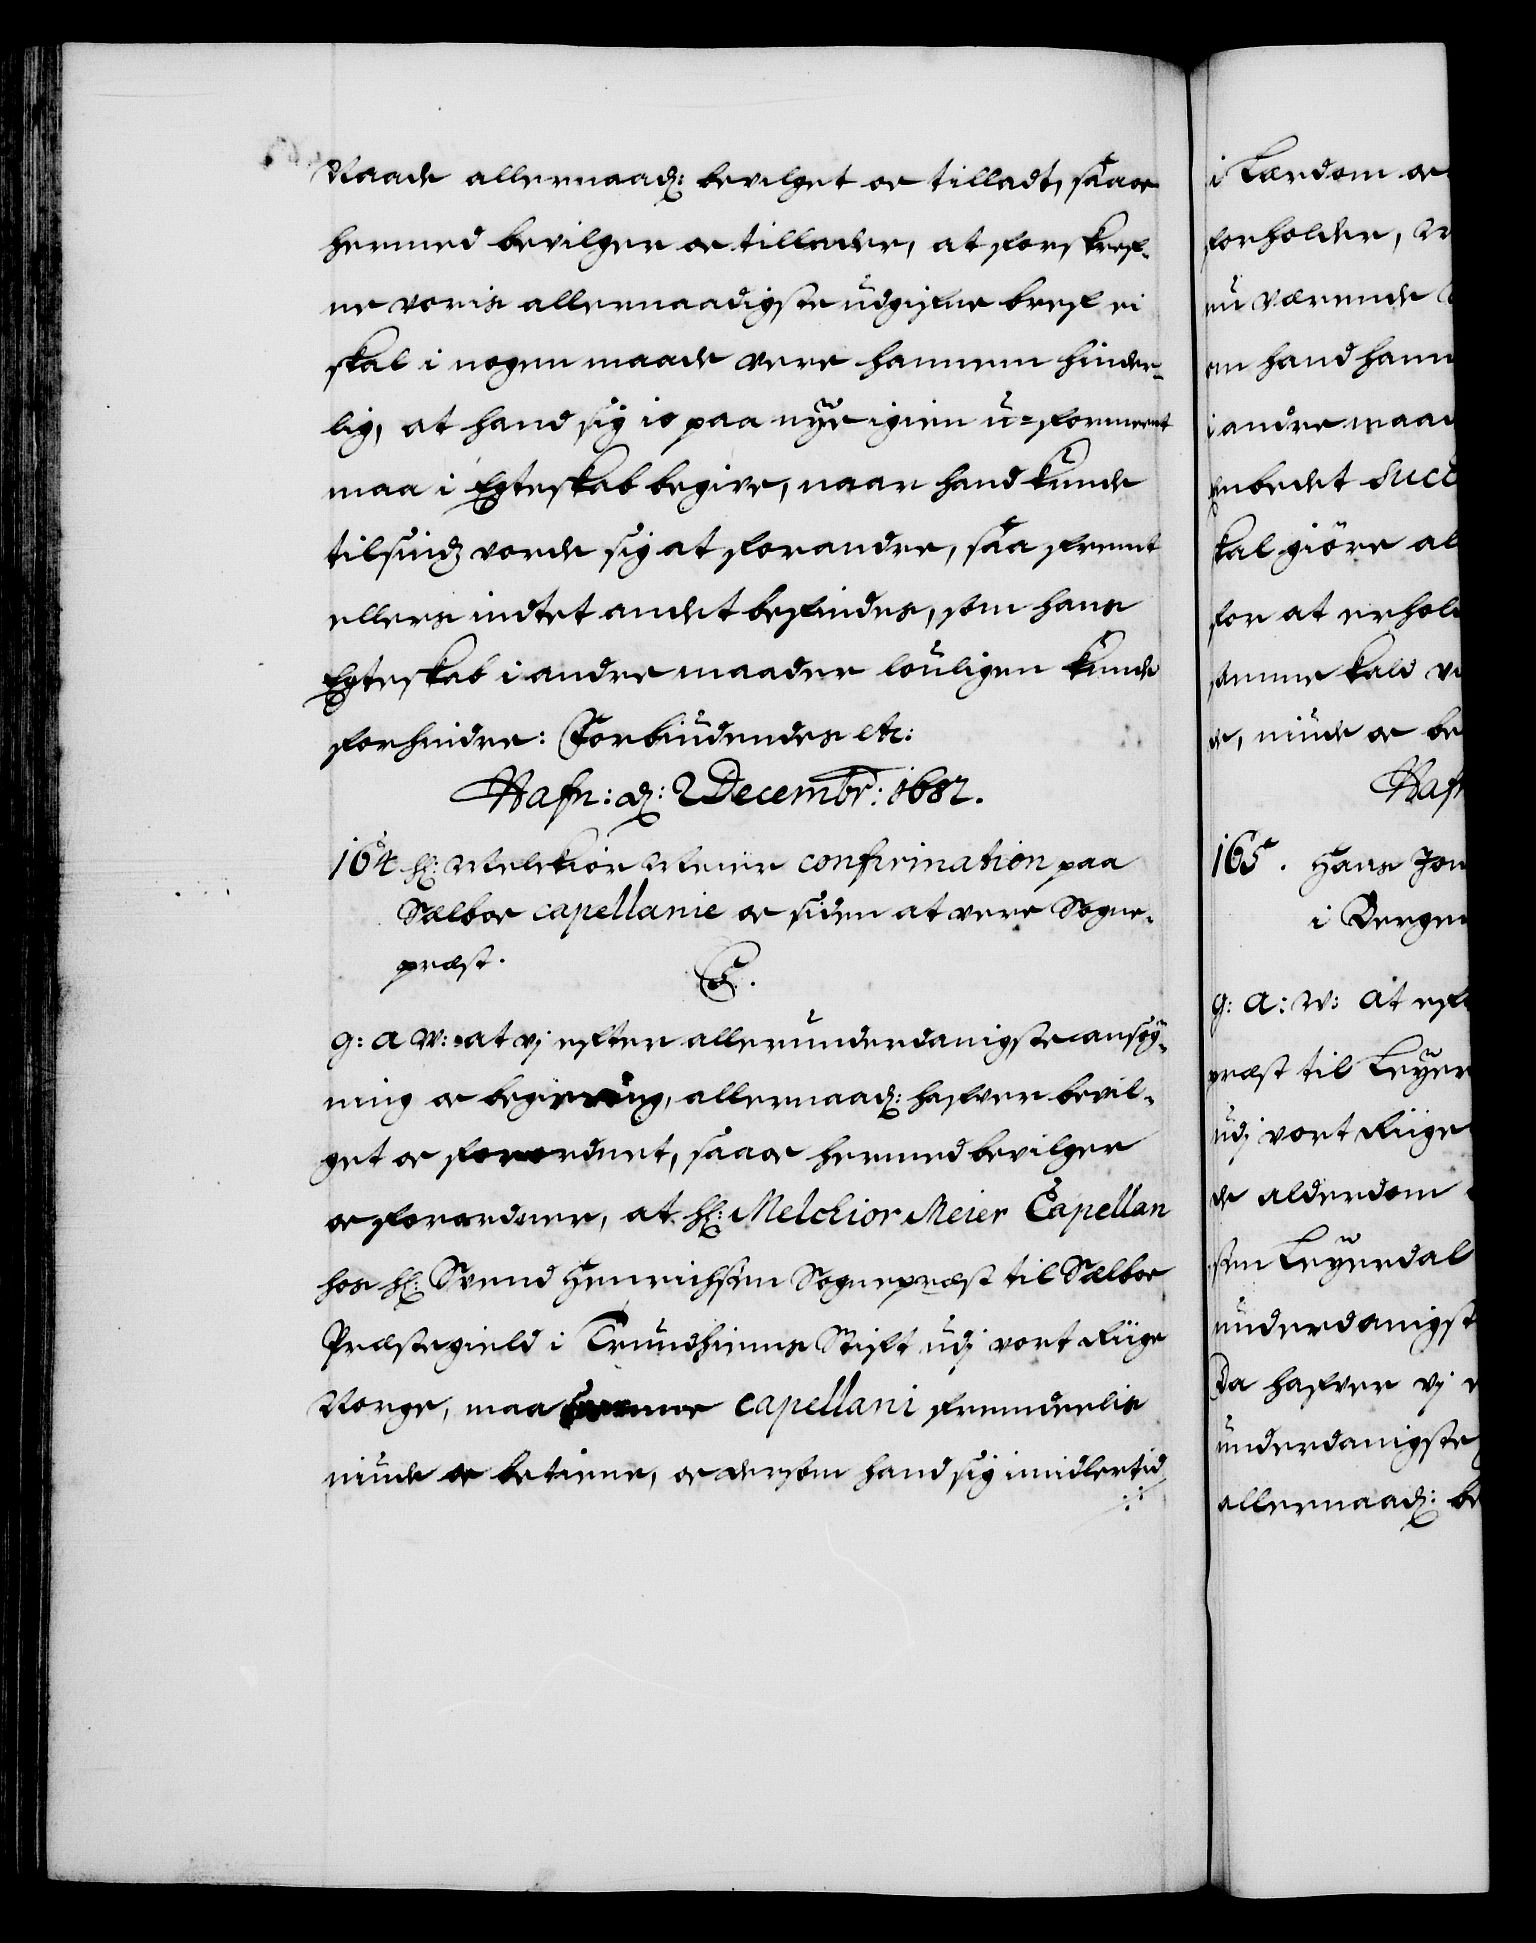 Naade allernaad: bevilget oc tilladt, saa oc
hermed bevilger oc tillader, at forskref-
ne voris allernaadigste udgifne bref ei
skal i nogen maade vere hannem hinder-
lig, at hand sig io paa nye igien u-formeent
maa i Egteskab begive, naar hand kunde
tilsindz vorde sig at forandre, saa fremt
ellers indtet andet befindes, som hans
Egteskab i andre maader louligen kunde
forhindre: Forbiudendes etc:
Hafn: d: 2 Decembr: 1682.
164 hr: Melchior Meier confirmation paa
Sælboe capellanie oc siden at vere Sogne-
præst.
C5.
G: A W: at vj efter allerunderdanigste ansøg-
ning oc begiering, allernaad: hafver bevil-
get oc forordnet, saa oc hermed bevilger
oc forordner, at hr: Melchior Meier Capellan
hos hr: Svend Henrichsen Sognepræst til Sælboe
Præstegield i Trundhiems Stift udj vort Riige
Norge, maa samme capellani fremdeelis
niude oc betiene, oc dersom hand sig imidlertid
i Lærdom oc
forholder,
nu værende
om hand hann
i andre maad
embedet succ
skal giöre al
for at erhold
samme kald
de, niude oc be
Hafn
165. Hans Jon
i Bergen
G: A: W: at eft
præst til Leyer
udj vort Riige
de alderdom
sten Leyerdal
underdanigst
Da hafver vj
underdanigste
allernaad: be